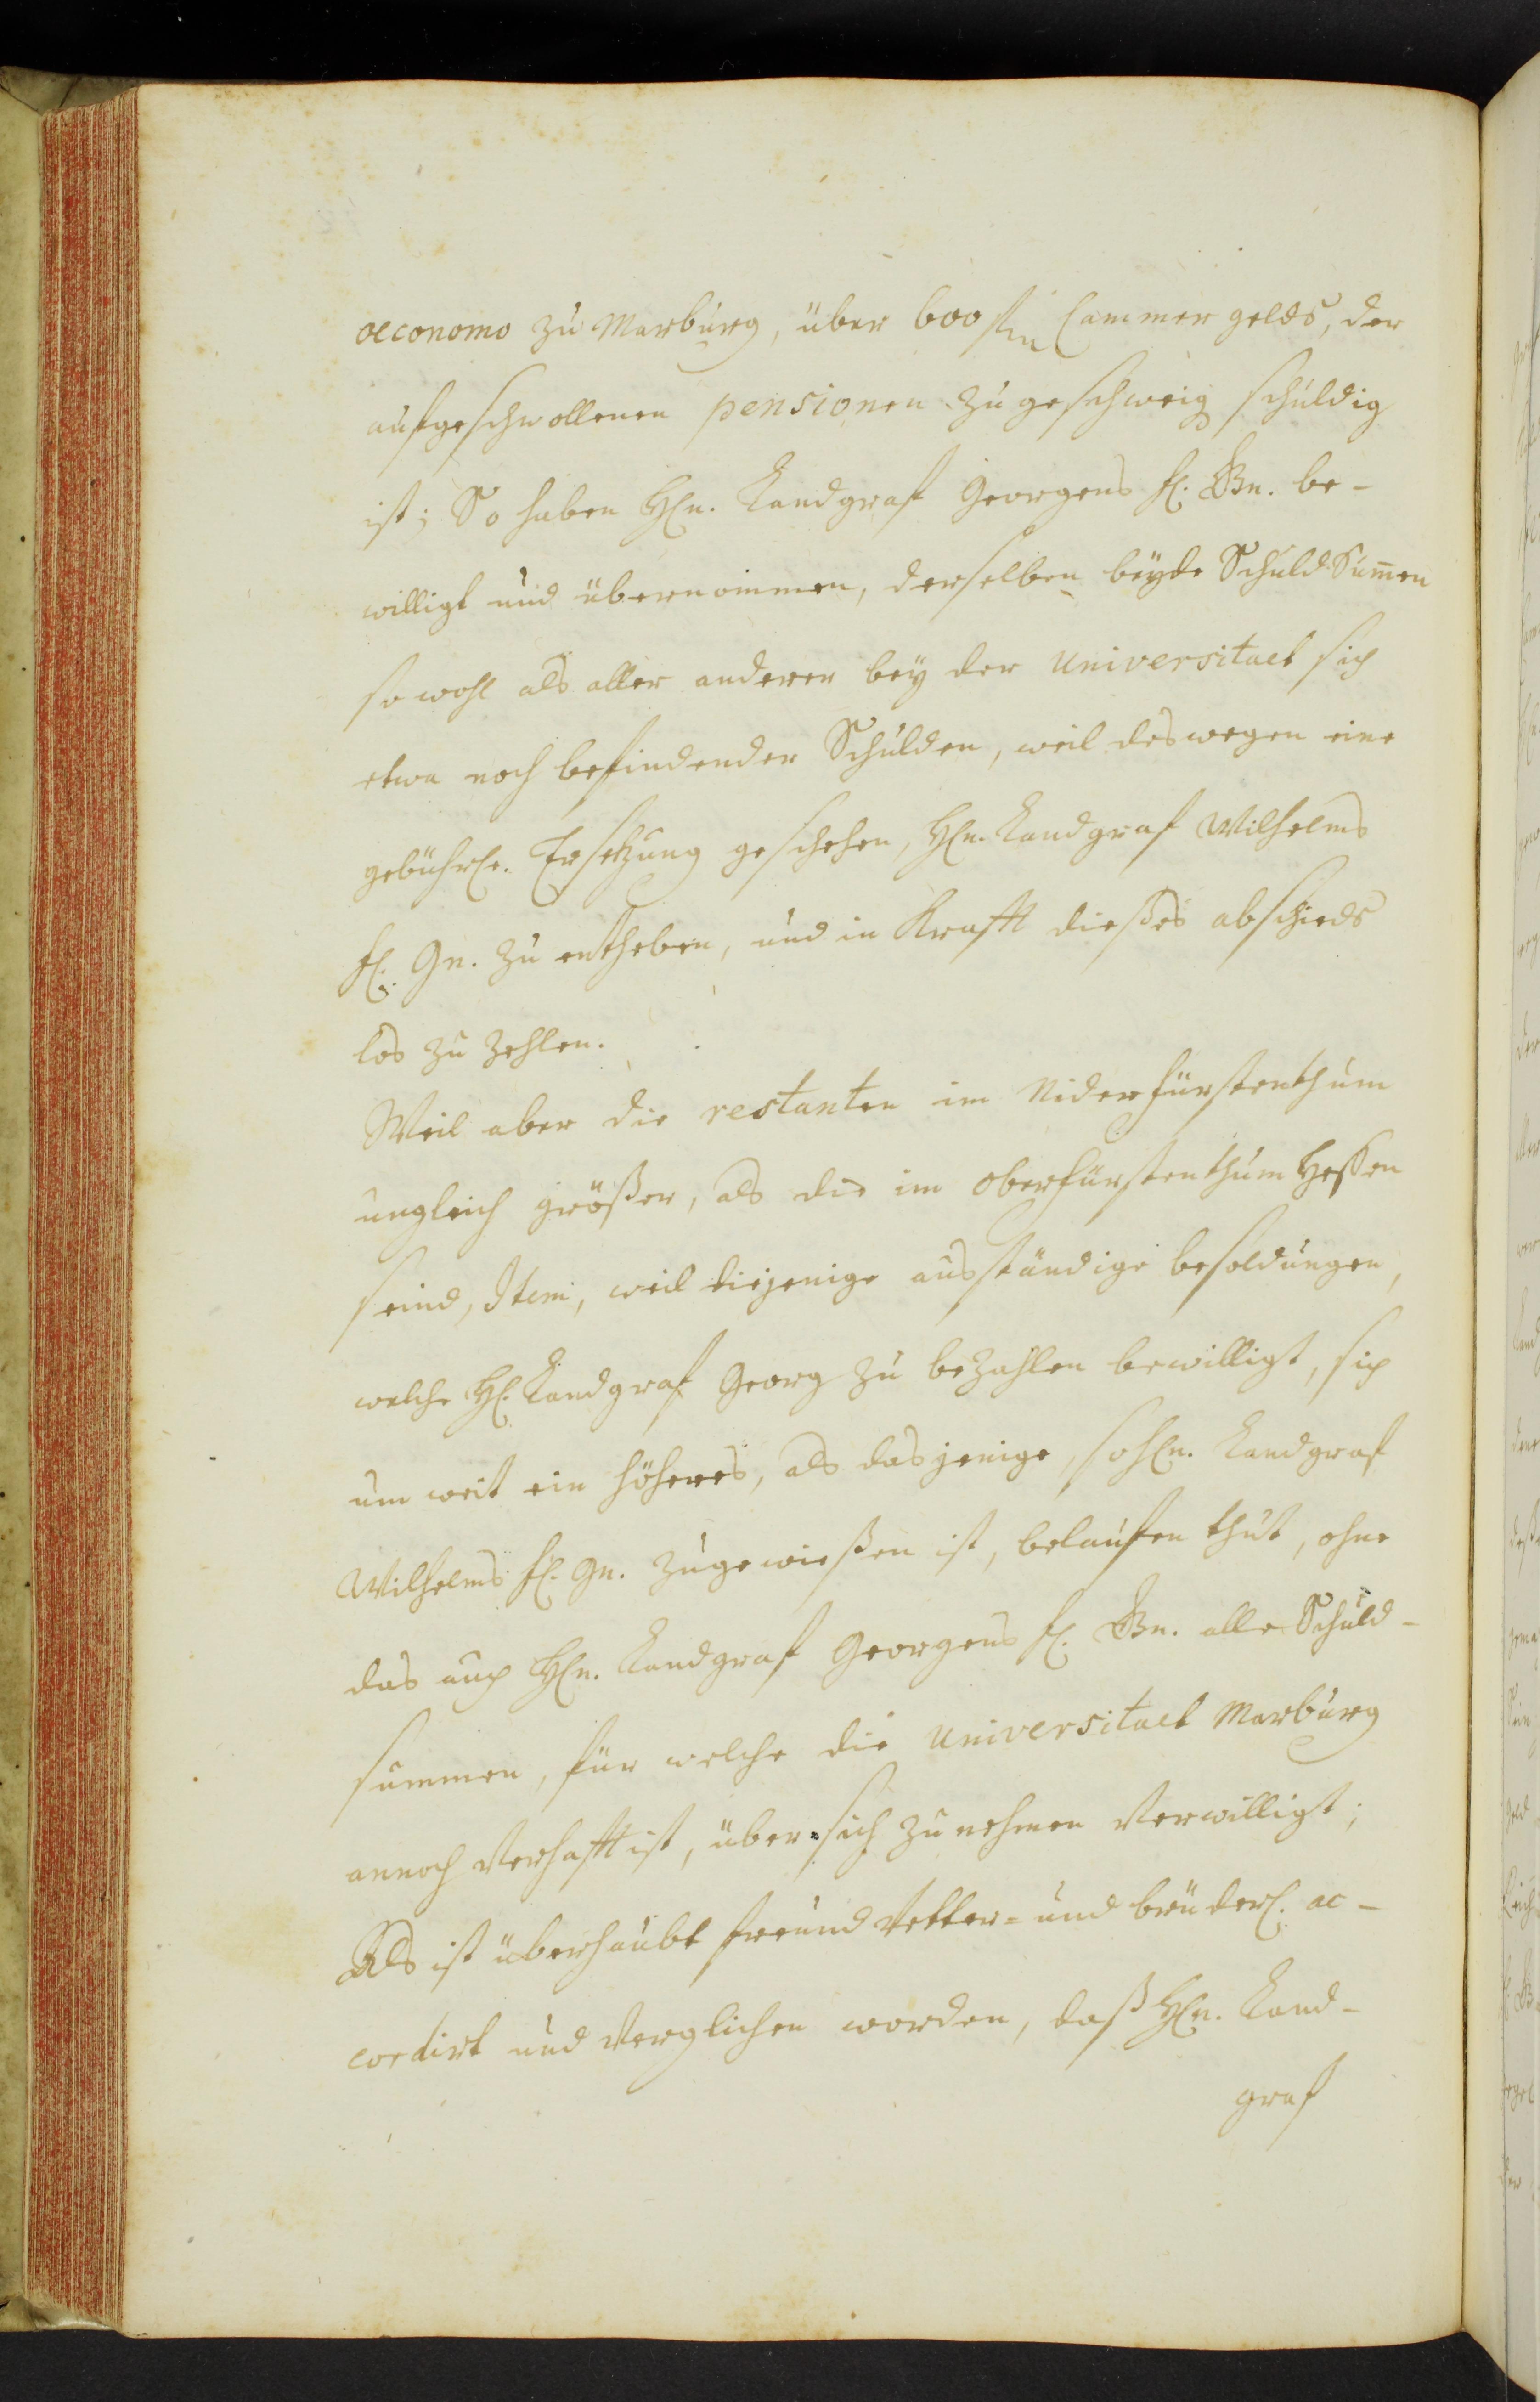 oeconomo zu Marburg, über 600 fln Cammer gelds, der
aufgeschwollenen pensionen zu geschweig schuldig
ist; So haben Hln. Landgraf Georgens fl. Gn. be-
willigt und übernommen, derselben beyde Schuld Sum̄en
so wohl als aller anderer bey der Universitaet sich
etwa noch befindender Schulden, weil deswegen eine
gebührle. Ersetzung geschehen, Hln. Landgraf Wilhelms
fl. Gn. zu entheben, und in Krafft dießes abschieds
los zu zehlen.
Weil aber die restanten im Niderfürstenthum
ungleich größer, als die im Oberfürstenthum Heßen
seind, Item, weil diejenige ausständige besoldungen,
welche Hl. Landgraf Georg zu bezahlen bewilligt, sich
um weit ein höheres, als dasjenige, so Hln. Landgraf
Wilhelms fl. Gn. zugewießen ist, belaufen thut, ohne
das auch Hln. Landgraf Georgens fl. Gn. alle Schuld-
summen, für welche die Universitaet Marburg
annoch Verhafft ist, über sich zu nehmen Verwilligt;
Als ist überhaubt freund Vetter= und brüderl. ac-
cordirt und Verglichen worden, daß Hln. Land-
graf